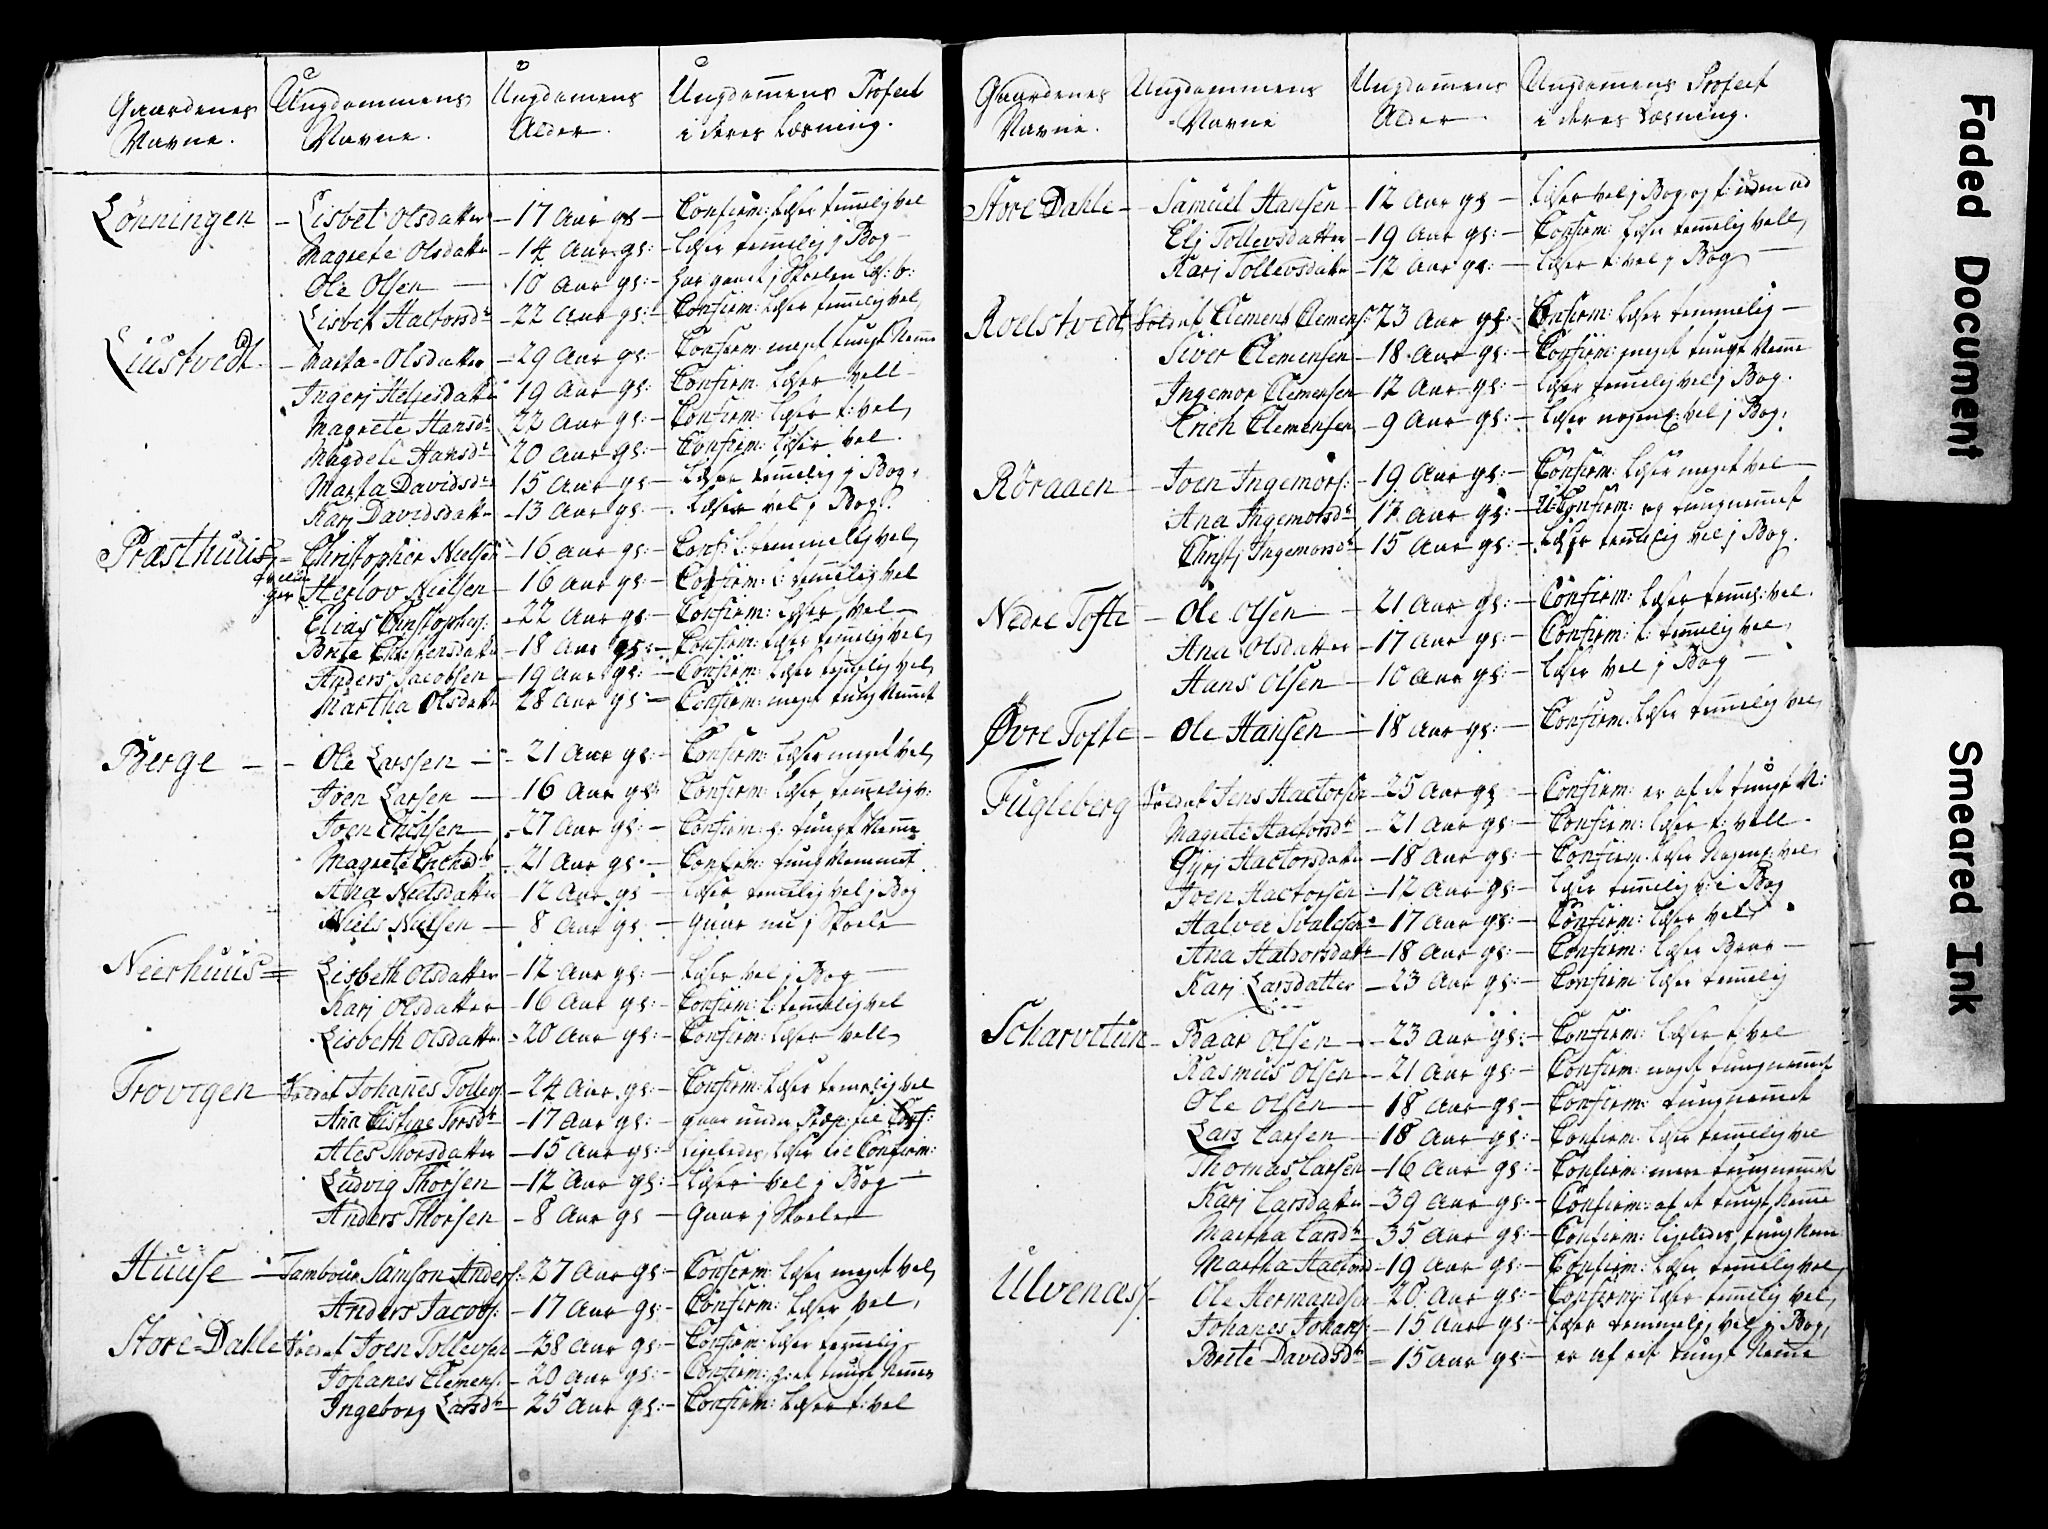 Gaardenes Navne. Ungdommens Navne. Ungdomens Alder. Ungdomens Profect i deres Læsning.
Lönningen – Lisbet Olsdatter – 17 Aar gl – Confirm: Læser temmelig vel
Magrete Olsdattr – 14 Aar gl: – Læser temmelig j Bog –
Ole Olsen – 10 Aar gl: – har gaaet j Skolen
Lisbet Hactorsdtr – 22 Aar gl: – Confirm: Læser temmelig vel
Liustvedt – Marta Olsdatter – 29 Aar gl: – Confirm: meget tungt Nemme
Ingerj Heljesdatter 19 Aar gl: – Confirm: Læser vell
Magrete Hansdr 22 Aar gl: – Confirm: Læser t: vel
Magdele Hansdr 20 Aar gl: – Confirm: Læser vel.
Marta Davidsdr 15 Aar gl – Læser temmelig j Bog.
Karj Davidsdattr – 13 Aar gl: – Læser vel j Bog.
Præsthuus – Christopher Nielsen – 16 Aar gl: – Conf: l: temmelig vel
Herlov Nielsen – 16 Aar gl: – Confirm: l: temmelig vel
Elias Christophers: – 22 Aar gl: – Confirm: Læser vel –
Brite Christensdattr – 18 Aar gl: – Confirm: Læser temmelig vel
Anders Jacobsen – 19 Aar gl: – Confirm: Læser temmelig vel
Martha Olsdattr 28 Aar gl: – Confirm: meget tung Nemmet
Berge – – Ole Larssen – 21 Aar gl: – Confirm: Læser meget vel
Joen Larsen – 16 Aar gl: Confirm: Læser temmelig v:
Joen Erichsen – 27 Aar gl: – Confirm: tungt Nemme
Magrete Erichsdr – 21 Aar gl: – Confirm: tung Nemmet
Ana Neilsdatter – 12 Aar gl – Læser temmelig vel j Bog
Niels Nielsen – 8 Aar gl: – gaar nu j Skole
Neierhuus = Lisbeth Olsdatter – 12 Aar gl: – Læser vel j Bog –
Karj Olsdatter – 16 Aar gl: – Confirm: l: temmelig vel
Lisbeth Olsdatter – 20 Aar gl: – Confirm: Læser vell
Trovigen Soldat Johanes Tollevs: – 24 Aar gl: – Confirm: Læser temelig vel
Ana Cistine Torsdr – 17 Aar gl: – gaar under Præp: til Conf:
Ales Thorsdatter – 15 Aar gl: – Ligeledes, Læser til Confirm:
Ludvig Thorsen – 12 Aar gl: – Læser vel j Bog –
Anders Thorsen – 8 Aar gl – Gaar j Skolen
Huuse – Tambour Samson Anders: – 27 Aar gl: – Confirm: Læser meget vel
Anders Jacobs: – 17 Aar gl: – Confirm: Læser vel.
Store-Dahle Soldat Joen Tollevsen – 28 Aar gl: – Confirm: Læser temmelig
Johanes Clemens: – 20 Aar gl: – Confirm: tungt Nemme
Ingeborg Larsdr – 25 Aar gl: – Confirm: Læser t: vel
Gaardenes Navne. Ungdommens Navne Ungdomens Alder. Ungdomens Profect i deres Læsning.
Store Dahle – Samuel Hansen – 12 Aar gl – Læser vel j Bog og t: uden ad
Elj Tollevsdatter – 19 Aar gl: – Confirm: Læser temmelig vell
Karj Tollevsdattr – 12 Aar gl: – Læser t: vel j Bog –
Roelstvedt Soldat Clemens Clemens: 23 Aar gl: – Confirm: Læser temmelig –
Siver Clemensen – 18 Aar gl: – Confirm: meget tungt Nemme
Ingemor Clemensen – 12 Aar gl: – Læser temmelig vel j Bog.
Erich Clemensen – 9 Aar gl: – Læser nogenl: vel j Bog.
Röraaen – Joen Ingemors: – 19 Aar gl: – Confirm: Læser meget vel –
Ana Ingemorsdr – 17 Aar gl: – U: Confirm: og tungnemmet
Christj Ingemorsdr – 15 Aar gl: – Læser temmelig vel j Bog.
Nedre Tofte – Ole Olsen – 21 Aar gl: – Confirm: Læser temmel: vel.
Ana Olsdatter – 17 Aar gl: – Confirm: l: temmelig vel
Hans Olsen – 10 Aar gl: – Læser vel j Bog –
Øvre Tofte – Ole Hansen – 18 Aar gl: – Confirm. Læser temmelig vel
Fugleberg Soldat Jens Hactorsen – 25 Aar gl – Confirm: er af et tungt N:
Magrete Hactorsdr – 21 Aar gl: – Confirm: Læser t: vell.
Gurj Hactorsdattr – 18 Aar gl: – Confirm. Læser Nogenl: vel
Joen Hactorsen – 12 Aar gl: – Læser temmelig v: i Bog
Halvor – 17 Aar gl: – Confirm: Læser vel
Ana Halvorsdattr – 18 Aar gl: – Confirm: Læser Brav –
Karj Larsdatter – 23 Aar gl: – Confirm: Læser temmelig
Scharvetun – Baar Olsen – 23 Aar gl: – Confirm: Læser t: vel
Rasmus Olsen – 21 Aar gl: – Confirm: noget tungnemmet
Ole Olsen – 18 Aar gl – Confirm: tungnemmet
Lars Larsen – 18 Aar gl: – Confirm: Læser temmelig vel
Thomas Larsen – 16 Aar gl: – Confirm: mere tungnemmet
Karj Larsdattr – 39 Aar gl: – Confirm: af et tungt Nemme
Martha Larsdr – 35 Aar gl: – Confirm: ligeledes tung Nem
Martha Hactorsd – 19 Aar gl: – Confirm: Læser temmelig vel
Ulvenæs – Ole Hermandsen – 20 Aar gl: – Confirm: Læser temmelig vel
Johanes Johans: – 15 Aar gl: – Læser temmelig vel j Bog
Brite Davidsdr – 15 Aar gl: – er af eet tungt Nemme
Faded Document
Smeared Ink